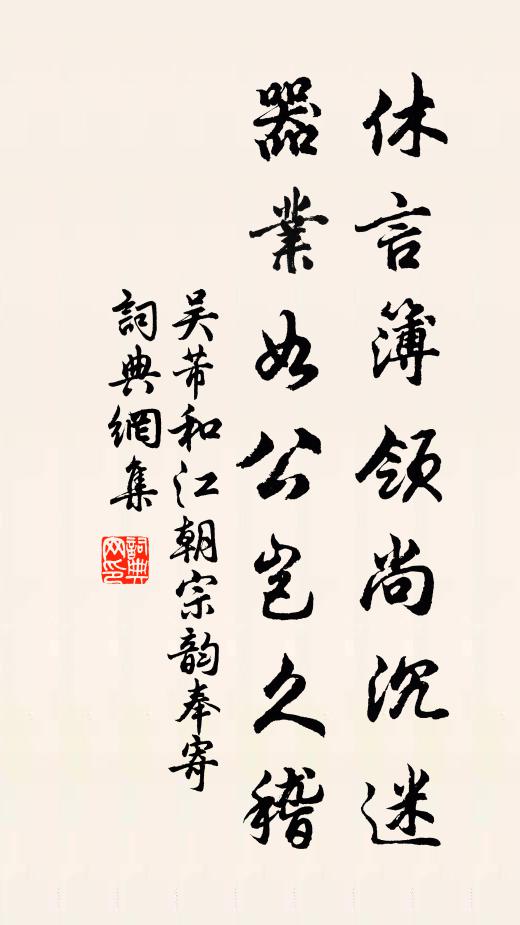 休言簿領尚沉迷
器業如公豈久稽
吴芾和江朝宗韵奉寄
詞典網集
詞典網印